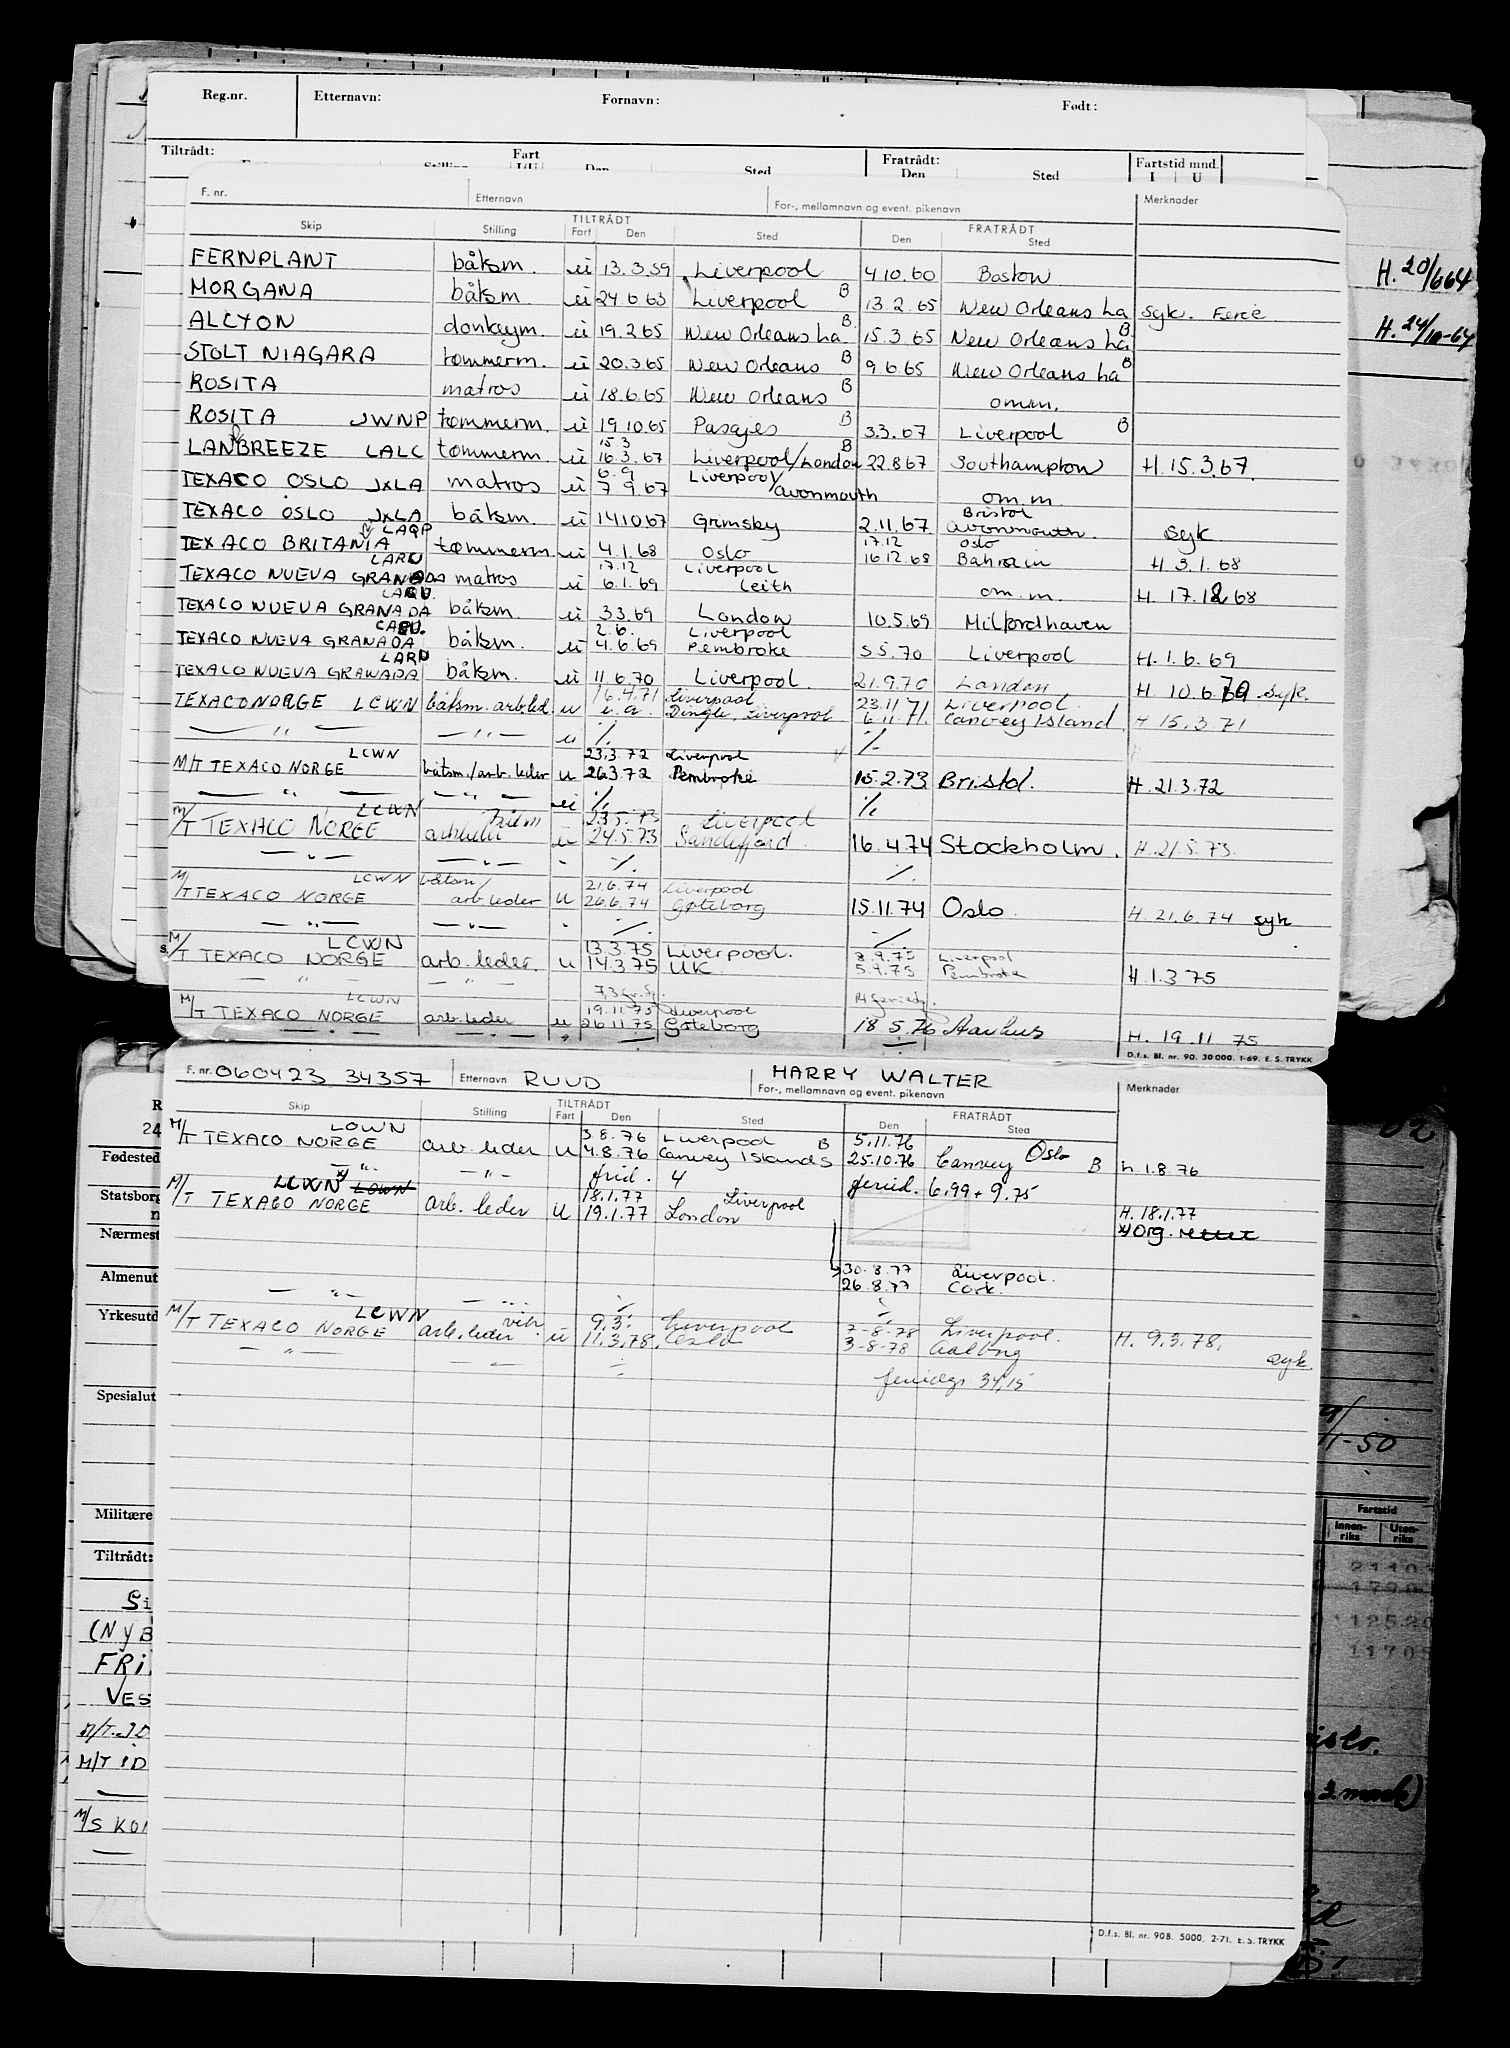 Reg.nr. Etternavn: Fornavn: Født:
Tiltrådt: Fart Fratrådt: Fartstid mnd.
Den Sted Den Sted I U
F. nr. Etternavn For-, mellomnavn og event. pikenavn Merknader
TILTRÅDT FRATRÅDT
Skip Stilling Fart Den Sted Den Sted
FERNPLANT båtsm. u 13.3.59 Liverpool 4.10.60 Boston
H. 20/664
MORGANA båtsm. u 24.6.63 Liverpool B 13.2.65 New Orleans La syk. Ferie
ALCYON donkeym. u 19.2.65 New Orleans La B 15.3.65 New Orleans La B
H. 24/10-64
STOLT NIAGARA tømmerm. u 20.3.65 New Orleans B 9.6.65 New Orleans La B
ROSITA matros u 18.6.65 New Orleans B omm.
ROSITA JWNP tømmerm. u 19.10.65 Pasajes B 3.3.67 Liverpool B
15.3
LANBREEZE LALC tømmerm. u 16.3.67 Liverpool/London B 22.8.67 Southampton H. 15.3.67.
6.9 Liverpool/
TEXACO OSLO JXLA matros u 7.9.67 Avonmouth om.m.
Bristol
TEXACO OSLO JXLA båtsm. u 14.10.67 Grimsby 2.11.67. Avonmouth. syk.
LAQP 17.12 Oslo
TEXACO BRITANIA tømmerm. u 4.1.68 Oslo 16.12.68 Bahrain H. 3.1.68
LARU 17.12 Liverpool
TEXACO NUEVA GRANADA matros u 6.1.69 Leith om.m. H. 17.12.68
TEXACO NUEVA GRANADA båtsm. u 3.3.69 London 10.5.69 Milfordhaven
2.6. Liverpool
TEXACO NUEVA GRANADA båtsm. u 4.6.69 Pembroke 5.5.70 Liverpool H. 1.6.69
LARU
TEXACO NUEVA GRANADA båtsm. u 11.6.70 Liverpool. 21.9.70 London H. 10.6.70 syk.
16.4.71 Liverpool 23.11 Liverpool.
TEXACO NORGE LCWN båtsm. arb.led. u Dingle, Liverpool 6.11.71. Canvey Island H 15.3.71
— " — — " — u ./. ./.
LCWN 23.3.72 Liverpool
M/T TEXACO NORGE båtsm./arb. leder u 26.3.72 Pembroke 15.2.73 Bristol. H. 21.3.72
— " — — " — u ./. ./.
LCWN båtsm 23.5.73 Liverpool
M/T TEXACO NORGE arbleder u 24.5.73 Sandefjord. 16.4.74 Stockholm. H. 21.5.73.
— " — — " — ./. ./.
LCWN båtsm/ 21.6.74 Liverpool
M/T TEXACO NORGE arb leder u 26.6.74 Gøteborg 15.11.74 Oslo. H. 21.6.74 syk
— " — — " — ./. ./.
LCWN 13.3.75 Liverpool. 8.9.75 Liverpool
M/T TEXACO NORGE arb. leder. u 14.3.75 UK. 5.9.75 Pembroke H. 1.3.75
— " — — " —
LCWN 19.11.75 Liverpool
M/T TEXACO NORGE arb. leder u 26.11.75 Gøteborg 18.5.76 Aarhus H. 19.11.75
D.f.s. Bl. nr. 90. 30 000. 1-69. E. S. TRYKK
F. nr. 060423 34357 Etternavn RUUD HARRY WALTER
For-, mellomnavn og event. pikenavn Merknader
TILTRÅDT FRATRÅDT
Skip Stilling Fart Den Sted Den Sted
LCWN 3.8.76 Liverpool B 5.11.76 Oslo
M/T TEXACO NORGE arb. leder u 4.8.76 Canvey Islands 25.10.76 Canvey B h. 1.8.76
— " — — " — frid. 4 feried. 6.99 + 9.75
LCWN x) LOWN 18.1.77 Liverpool
M/T TEXACO NORGE arb. leder u 19.1.77 London H. 18.1.77
x) Org. rettet
30.8.77 Liverpool.
26.8.77 Cork.
— " — — " — ./. ./.
LCWN vikr. 9.3. Liverpool 7-8-78 Liverpool.
M/T TEXACO NORGE arb. leder u 11.3.78. Oslo 3-8-78 Aalborg H. 9.3.78.
syk.
— " — — " — ./.
feriedgr 34,15
D.f.s. Bl. nr. 90B. 5000. 2-71. E. S. TRYKK
24
Fødested
Statsborg
Nærmest
Almenut
Yrkesutd
Spesialut
Militære
Tiltrådt:
Si
(NyB
FRI
VES
M/T ID
M/S KON
1-50
Fartstid
Innen-riks Uten-riks
2110
1252
1170